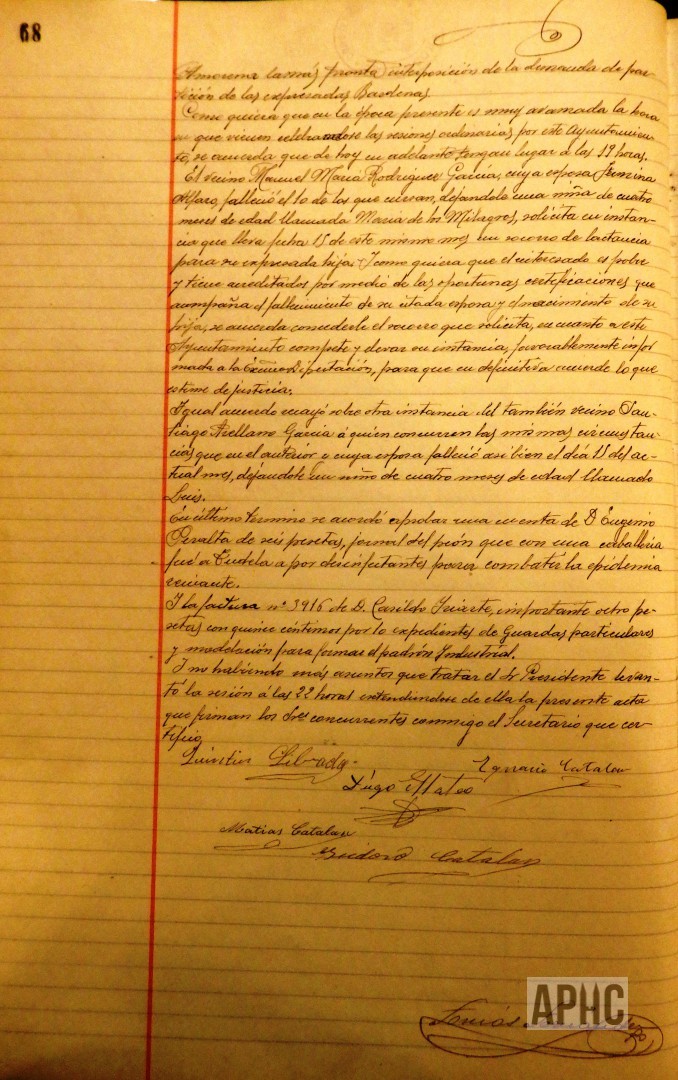 68
Amorena la más pronta interposición de la demanda de par-
tición de las expresadas Bardenas
Como quiera que en la época presente es muy avanzada la hora
en que vienen celebrandose las sesiones ordinarias por este Ayuntamien-
to, se acuerda que de hoy en adelante tengan lugar a las 19 horas.
El vecino Manuel Maria Rodriguez Garcia, cuya esposa Fermina
Alfaro, falleció el 10 de los que cursan, dejandole una niña de cuatro
meses de edad llamada Maria de los Milagros, solicita en instan-
cia que lleva fecha 15 de este mismo mes un socorro de lactancia
para su expresada hija. Y como quiera que el interesado es pobre
y tiene acreditados por medio de las oportunas certificaciones que
acompaña el fallecimiento de su citada esposa y el nacimiento de su
hija, se acuerda concederle el socorro que solicita, en cuanto a este
Ayuntamiento compete y elevar su instancia, favorablemente infor
mada a la Excma Diputación, para que en definitiva acuerde lo que
estime de justicia.
Igual acuerdo recayó sobre otra instancia del también vecino San-
tiago Arellano Garcia á quien concurren las mismas circunstan-
cias que en el anterior y cuya esposa falleció asi bien el día 15 del ac-
tual mes, dejandole un niño de cuatro meses de edad llamado
Luis.
En último termino se acordó aprobar una cuenta de D Eugenio
Peralta de seis pesetas, jornal del peón que con una caballeria
fué a Tudela a por desinfectantes para combatir la epidemia
reinante.
Y la factura nº 3916 de D. Casildo Iriarte, importante ocho pe-
setas con quince céntimos por lo expedientes de Guardas particulares
y modelación para formar el padrón Industrial.
Y no habiendo más asuntos que tratar el Sr Presidente levan-
tó la sesión á las 22 horas extendiendose de ella la presente acta
que firman los Sres concurrentes conmigo el Secretario que cer-
tifico
Quintin Librada
Ygnacio Catalan
Yñigo Mateo
Matias Catalan
Ysidoro Catalan
APHC